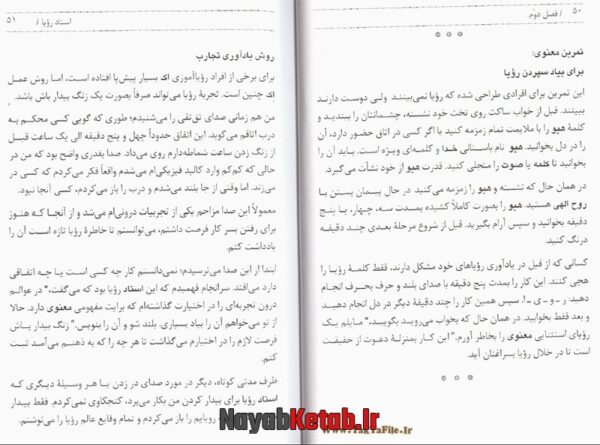 ۵۰ / فصل دوم
تمرین معنوی:
برای بیاد سپردن رؤیا
این تمرین برای افرادی طراحی شده که رؤیا نمی‌بینند ولی دوست دارند
ببینند. قبل از خواب ساکت روی تخت خود نشسته، چشمانتان را ببندید و
کلمهٔ هیو را با ملایمت تمام زمزمه کنید یا اگر کسی در اتاق حضور دارد، آن
را در دل بخوانید. هیو نام باستانی خدا و کلمه‌ای ویژه است. باید آن را
بخوانید تا کلمه یا صوت را متجلی کنید. قدرت هیو از خود نشأت می‌گیرد.
در همان حال که نشسته و هیو را زمزمه می‌کنید در حال پیمان بستن با
روح الهی هستید. هیو را بصورت کاملاً کشیده بمدت سه، چهار، یا پنج
دقیقه بخوانید و سپس آرام بگیرید. قبل از شروع مرحلهٔ بعدی چند دقیقه
درنگ کنید.
کسانی که از قبل در یادآوری رؤیاهای خود مشکل دارند، فقط کلمهٔ رؤیا را
هجی کنند. این کار را بمدت پنج دقیقه با صدای بلند و حرف بحرف انجام
دهید: ر – و – ی – ا. سپس همین کار را چند دقیقهٔ دیگر در دل انجام دهید
و بعد فقط بخوابید. در همان حال که بخواب می‌روید بگویید، "مایلم یک
رؤیای استثنایی معنوی را بخاطر آورم." این کار بمنزلهٔ دعوت از حقیقت
است تا در خلال رؤیا بسراغتان آید.
استاد رؤیا / ۵۱
روش یادآوری تجارب
برای برخی از افراد رؤیاآموزی اک بسیار پیش‌پا افتاده است، اما روش عمل
اک چنین است. تجربهٔ رؤیا می‌تواند صرفاً بصورت یک زنگ بیدار باش باشد.
من هم زمانی صدای تق‌تقی را می‌شنیدم؛ طوری که گویی کسی محکم به
درب اتاقم می‌کوبد. این اتفاق حدوداً چهل و پنج دقیقه الی یک ساعت قبل
از زنگ زدن ساعت شماطه‌دارم روی می‌داد. صدا بقدری واضح بود که من در
حالی که کم‌کم وارد کالبد فیزیکی‌ام می‌شدم واقعاً فکر می‌کردم که کسی در
می‌زند. اما وقتی از جا بلند می‌شدم و درب را باز می‌کردم، کسی آنجا نبود.
معمولاً این صدا مزاحم یکی از تجربیات درونی‌ام می‌شد و از آنجا که هنوز
برای رفتن بسر کار فرصت داشتم، می‌توانستم تا خاطرهٔ رؤیا تازه است آن را
یادداشت کنم.
ابتدا از این صدا می‌ترسیدم؛ نمی‌دانستم کار چه کسی است یا چه اتفاقی
دارد می‌افتد. سرانجام فهمیدم که این استاد رؤیا بود که می‌گفت، "در عوالم
درون تجربه‌ای را در اختیارت گذاشته‌ام که برایت مفهومی معنوی دارد. حالا
از تو می‌خواهم آن را بیاد بسپاری. بلند شو و آن را بنویس." زنگ بیدار باش
فرصت لازم را در اختیارم می‌گذاشت تا هر چه را که به ذهنم می‌آمد ثبت
کنم.
ظرف مدتی کوتاه، دیگر در مورد صدای در زدن یا هر وسیلهٔ دیگری که
استاد رؤیا برای بیدار کردن من بکار می‌برد، کنجکاوی نمی‌کردم. فقط بیدار
رویایم را باز می‌کردم و تمام وقایع عالم رؤیا را می‌نوشتم.
NayabKetab.Ir
TakTaFile.Ir